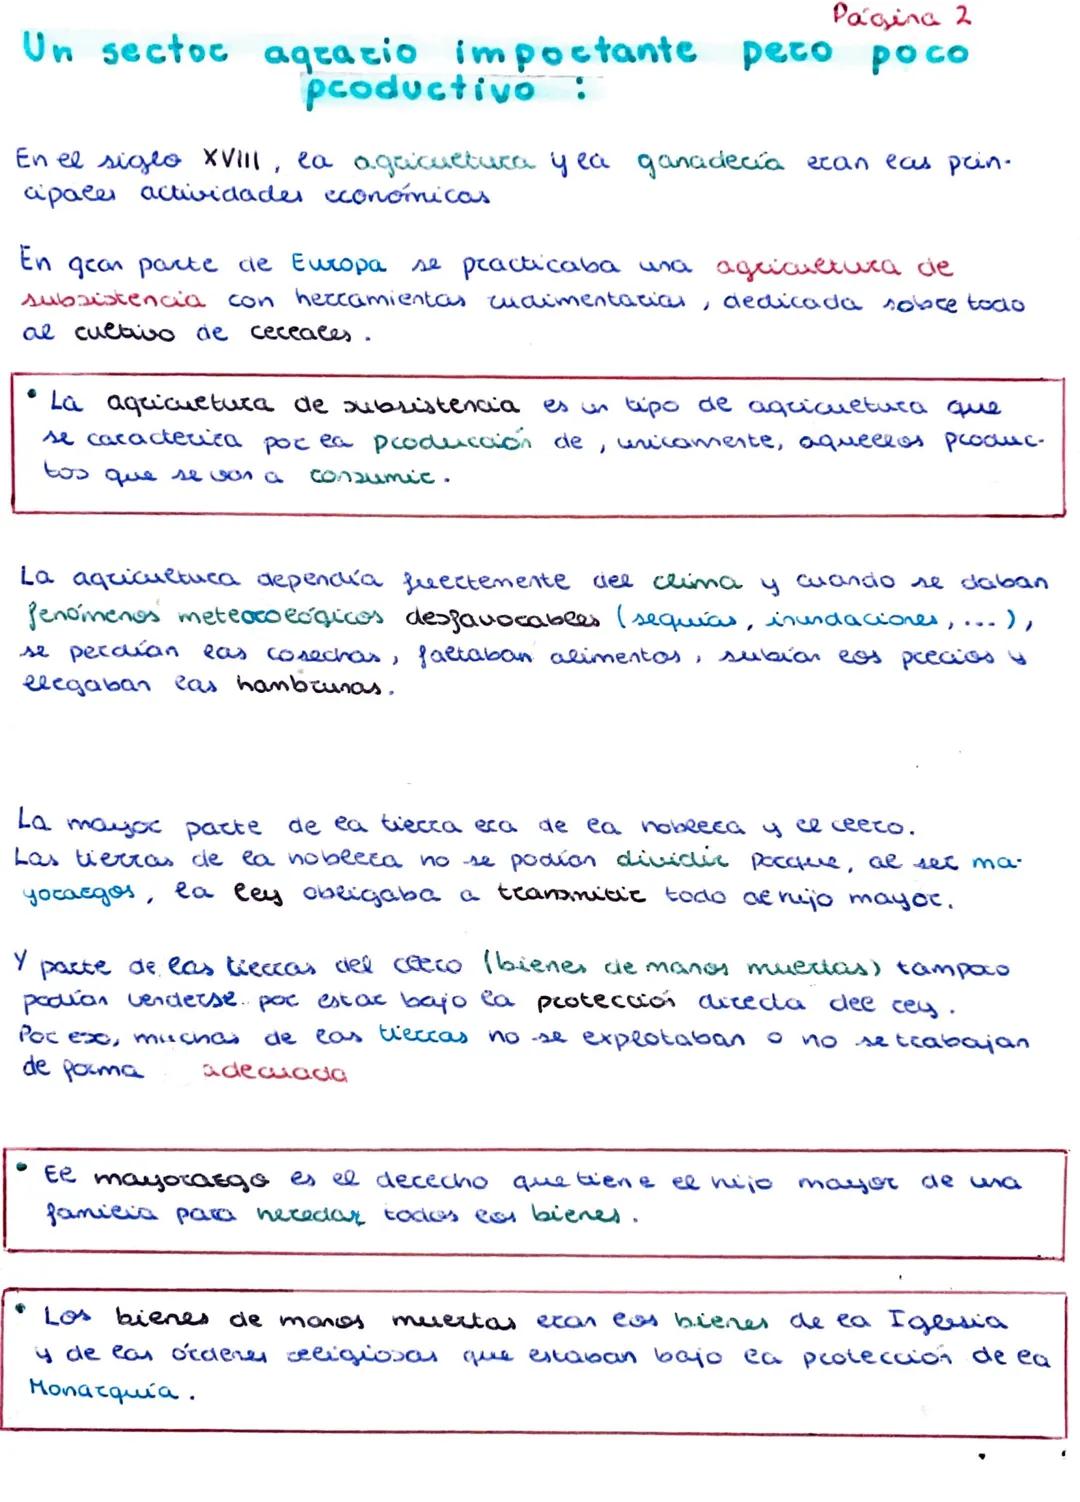 Página 2
Un sector agrario importante pero poco
productivo :
En el siglo XVIII, la agricultura y la ganadería eran las prin-
cipales actividades económicas
En gran parte de Europa se practicaba una agricultura de
subsistencia con herramientas rudimentarias, dedicada sobre todo
al cultivo de cereales.
• La agricultura de subsistencia es un tipo de agricultura que
se caracteriza por la producción de, unicamente, aquellos produc-
tos que se van a consumir.
La agricultura dependía fuertemente del clima y cuando se daban
fenómenos meteorológicos desfavorables (sequías, inundaciones, ...),
se perdían las cosechas, faltaban alimentos, subían los precios y
llegaban las hambrunas.
La mayor parte de la tierra era de la nobleza y el clero.
Las tierras de la nobleza no se podían dividir porque, al ser ma-
yorazgos, la ley obligaba a transmitir todo al hijo mayor.
Y parte de las tierras del clero (bienes de manos muertas) tampoco
podían venderse por estar bajo la protección directa del rey.
Por eso, muchas de las tierras no se explotaban o no se trabajan
de forma adecuada
• El mayorazgo es el derecho que tiene el hijo mayor de una
familia para heredar todos los bienes.
• Los bienes de manos muertas eran los bienes de la Iglesia
y de las órdenes religiosas que estaban bajo la protección de la
Monarquía.